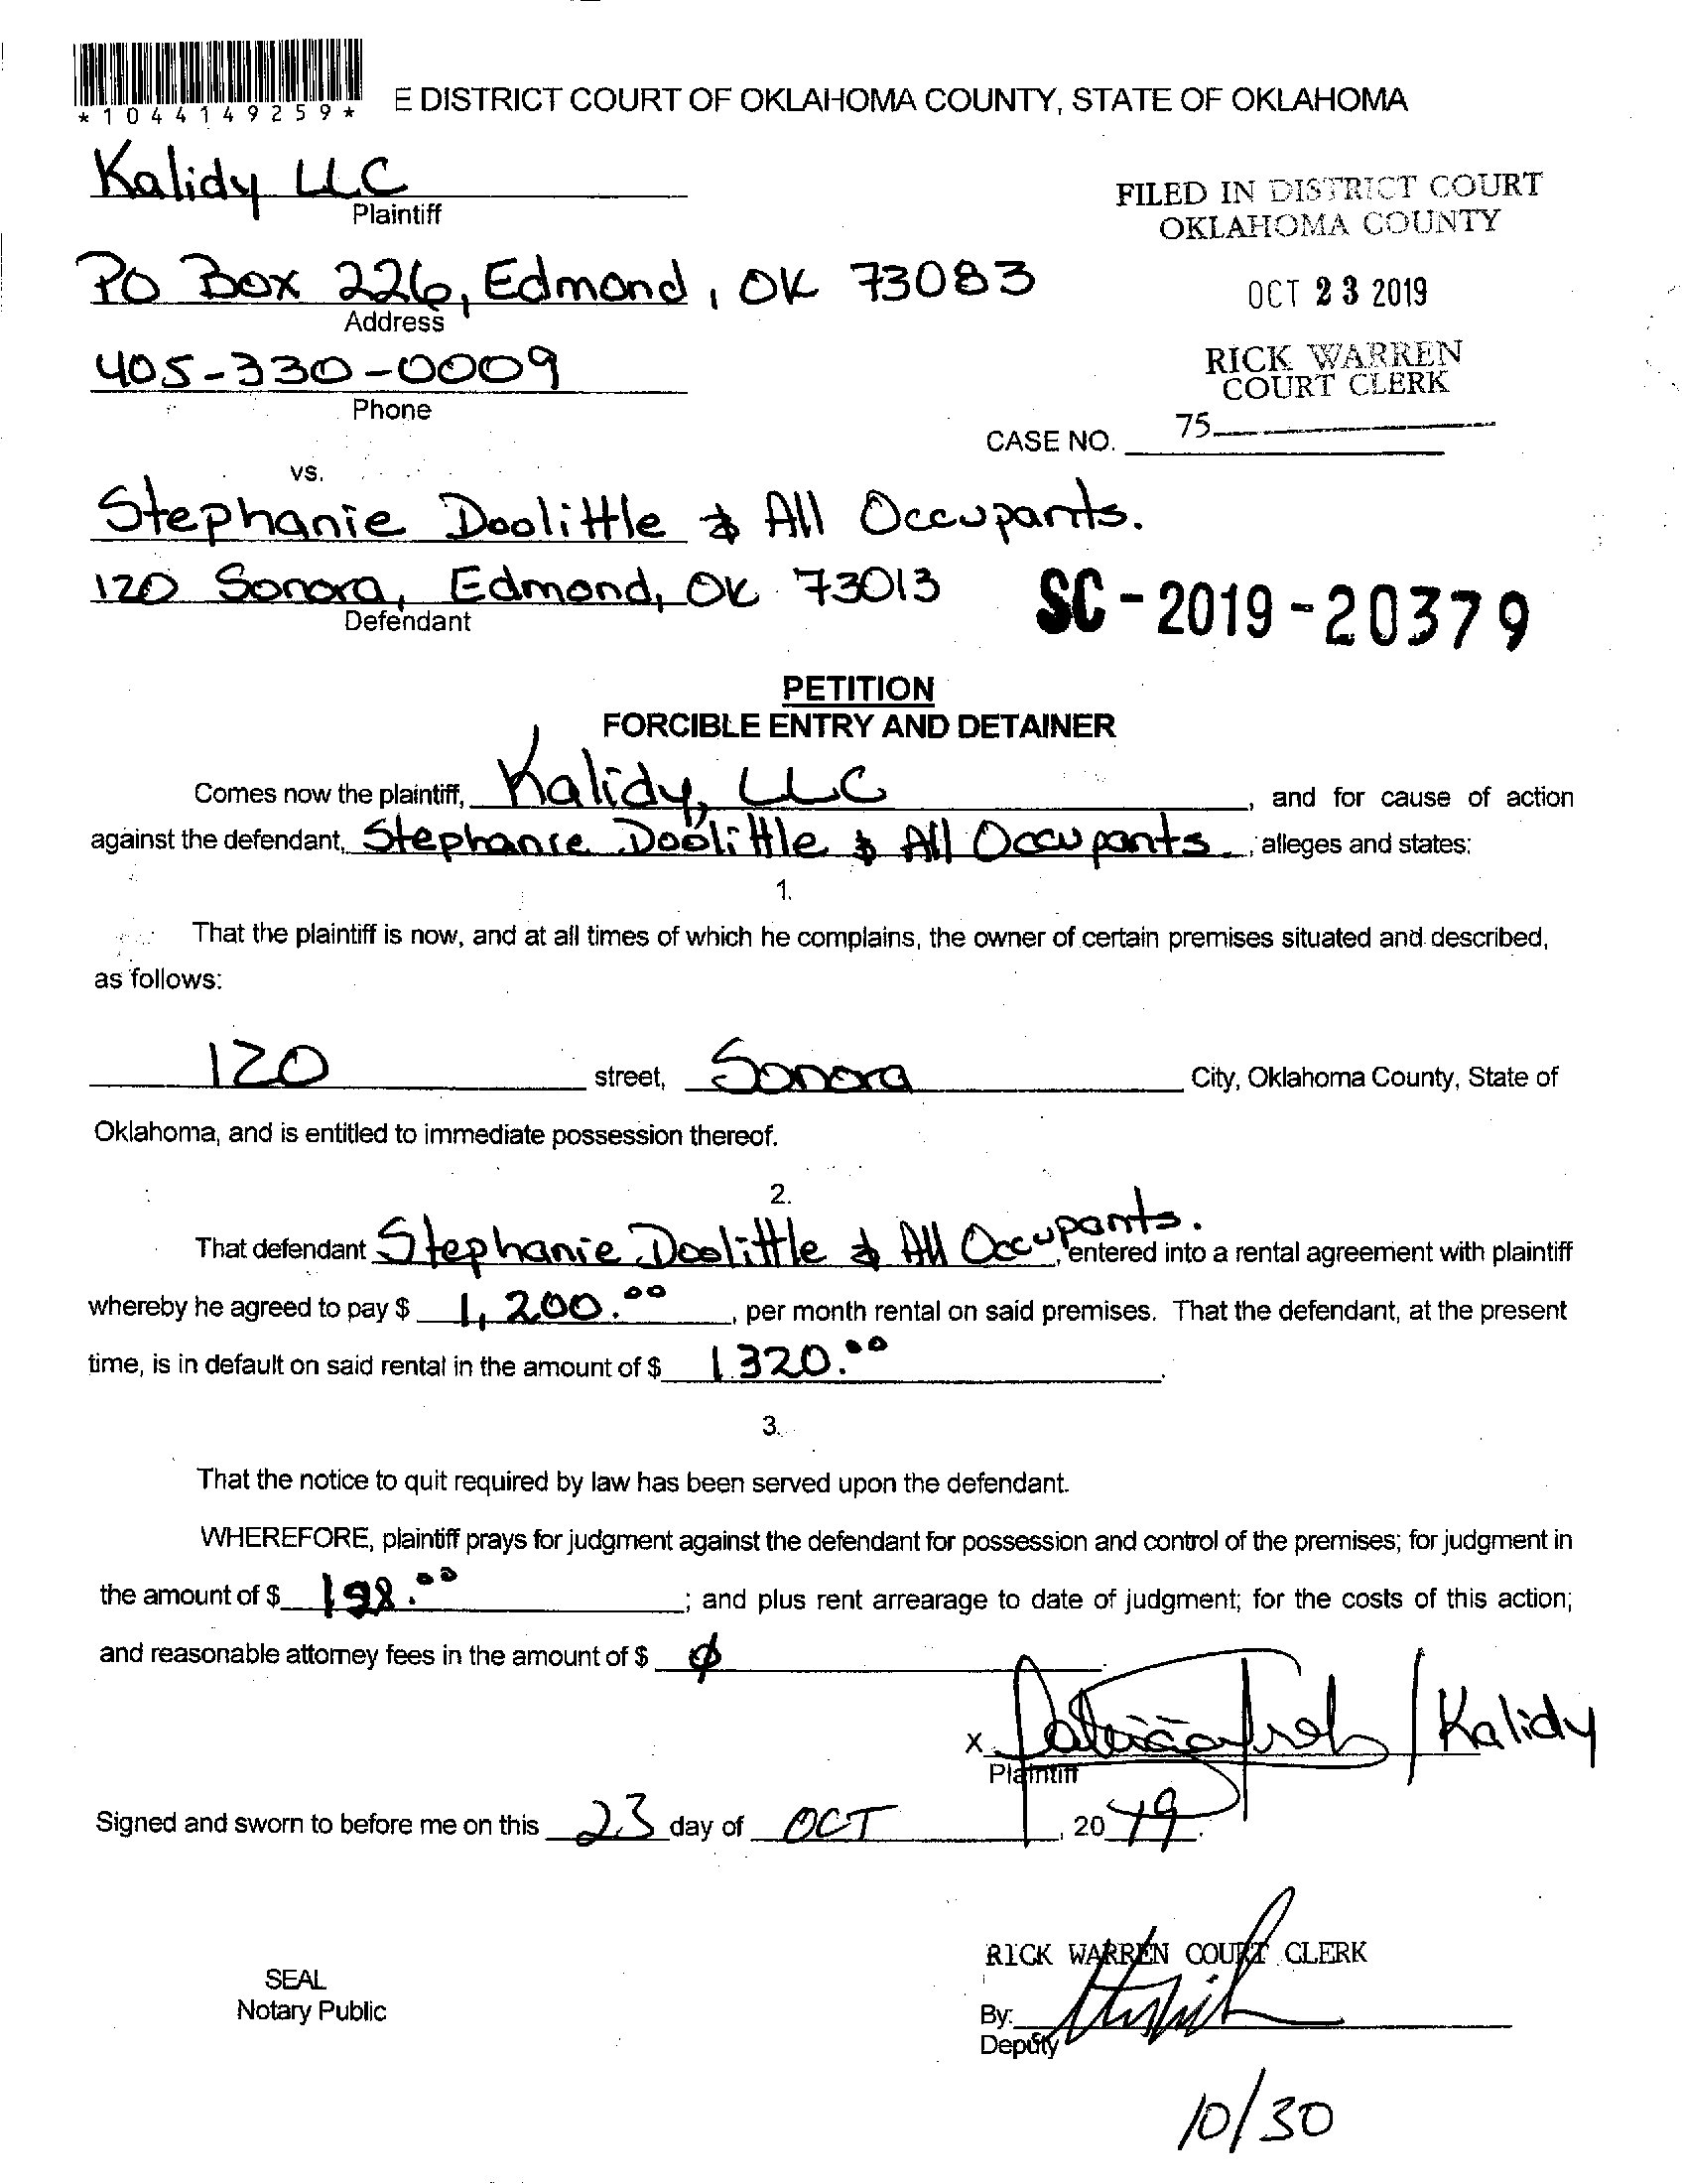 *1044149259*
E DISTRICT COURT OF OKLAHOMA COUNTY, STATE OF OKLAHOMA
Kalidy LLC
Plaintiff
FILED IN DISTRICT COURT
OKLAHOMA COUNTY
PO Box 226, Edmond, OK 73083
Address
OCT 23 2019
405-330-0009
Phone
RICK WARREN
COURT CLERK
75
CASE NO.
vs.
Stephanie Doolittle & All Occupants.
120 Sonora, Edmond, OK 73013
Defendant
SC-2019-20379
PETITION
FORCIBLE ENTRY AND DETAINER
Comes now the plaintiff, Kalidy, LLC, and for cause of action
against the defendant, Stephanie Doolittle & All Occupants, alleges and states:
1.
That the plaintiff is now, and at all times of which he complains, the owner of certain premises situated and described,
as follows:
120 street, Sonora City, Oklahoma County, State of
Oklahoma, and is entitled to immediate possession thereof.
2.
That defendant Stephanie Doolittle & All Occupants., entered into a rental agreement with plaintiff
whereby he agreed to pay $ 1,200.00, per month rental on said premises. That the defendant, at the present
time, is in default on said rental in the amount of $ 1320.00.
3.
That the notice to quit required by law has been served upon the defendant.
WHEREFORE, plaintiff prays for judgment against the defendant for possession and control of the premises; for judgment in
the amount of $ 198.00; and plus rent arrearage to date of judgment; for the costs of this action;
and reasonable attorney fees in the amount of $ ϕ
x / Kalidy
Plaintiff
Signed and sworn to before me on this 23 day of OCT, 2019.
RICK WARREN COURT CLERK
SEAL
Notary Public
By:
Deputy
10/30